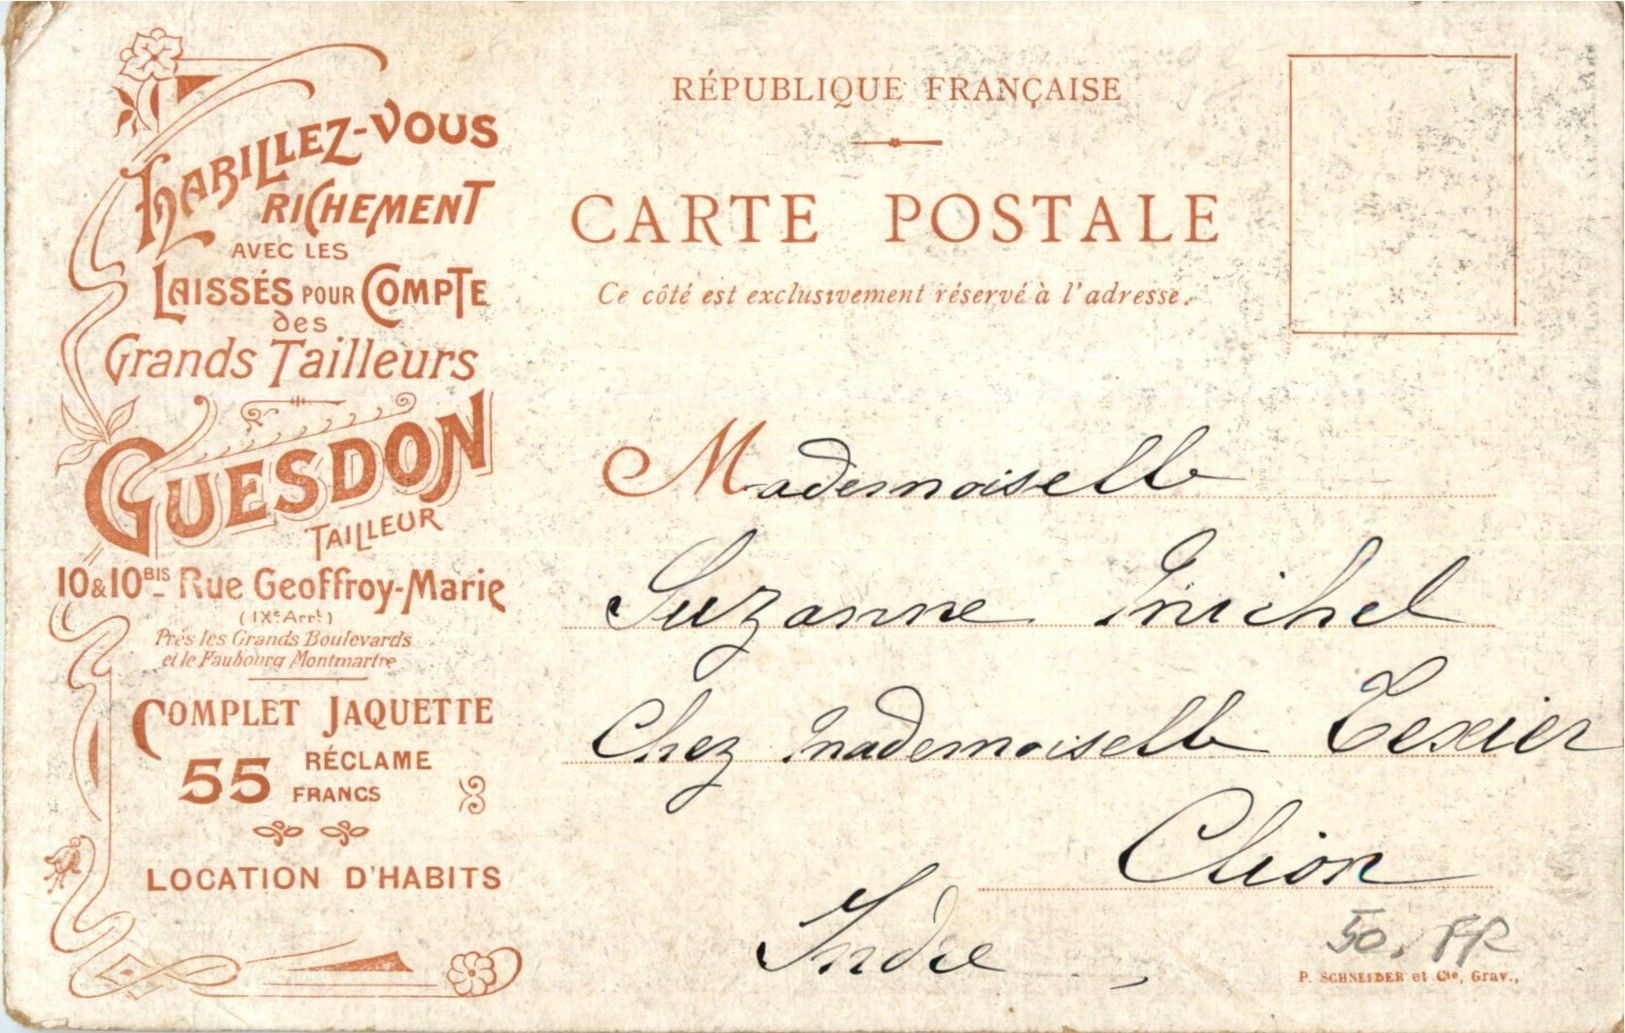 HABILLEZ-VOUS
RICHEMENT
AVEC LES
LAISSÉS POUR COMPTE
des
Grands Tailleurs
GUESDON
TAILLEUR
10 & 10BIS Rue Geoffroy-Marie
(IXe Arrt)
Près les Grands Boulevards
et le Faubourg Montmartre
COMPLET JAQUETTE
RÉCLAME
55 FRANCS
LOCATION D'HABITS
RÉPUBLIQUE FRANÇAISE
CARTE POSTALE
Ce côté est exclusivement réservé à l'adresse.
Mademoiselle
Suzanne Michel
Chez Mademoiselle Texier
Clion
Indre
50. FR
P. SCHNEIDER et Cie, Grav.,